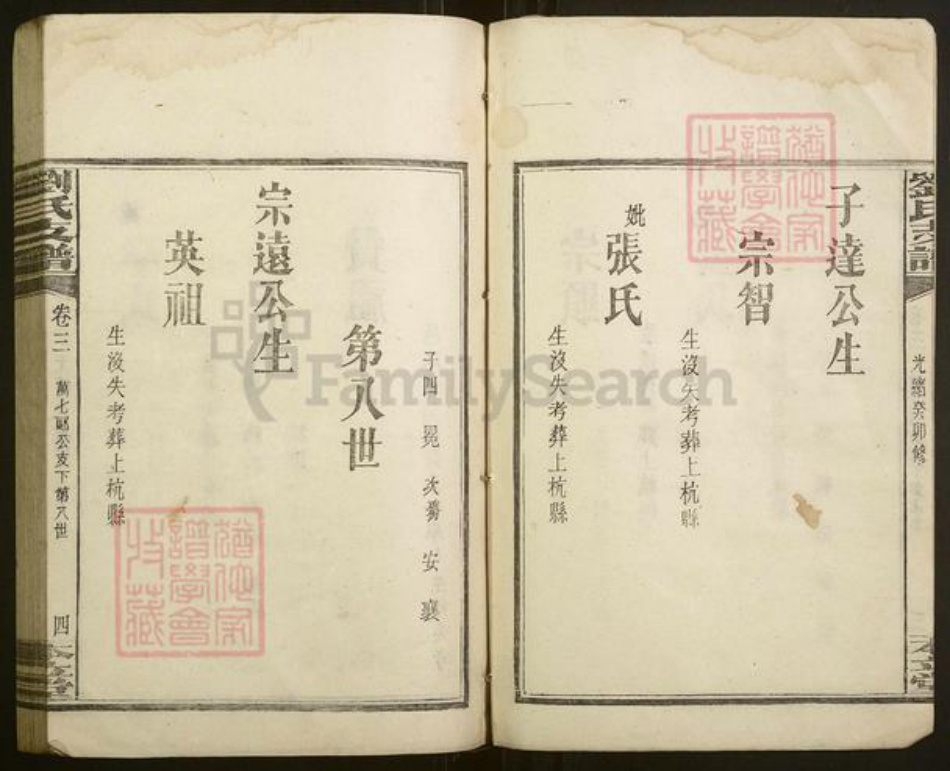 光緒癸卯修
子達公生
宗智
生沒失考葬上杭縣
妣
張氏
生沒失考葬上杭縣
子四
安
襄
第八世
宗遠公生
英祖
生沒失考葬上杭縣
劉氏支譜
卷三
萬七郎公支下第八世
四
FamilySearch